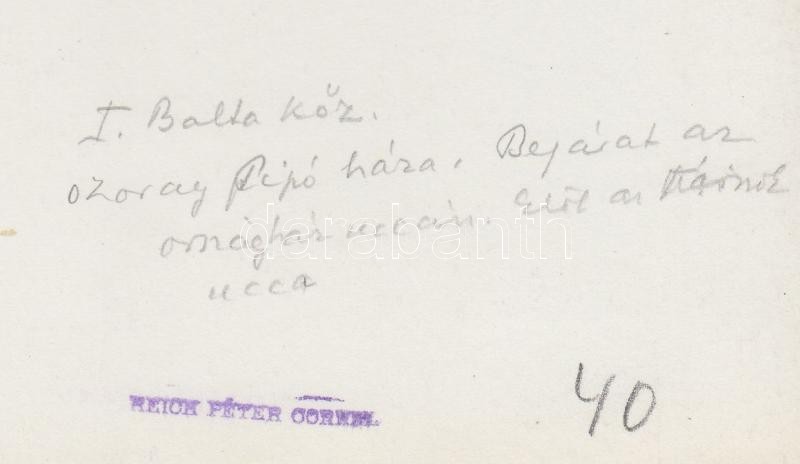 I. Balta köz.
Ozoray Pipó háza. Bejárat az
országház uccán. Elöl az
ucca
darabanth
REICH PÉTER CORNEL
40